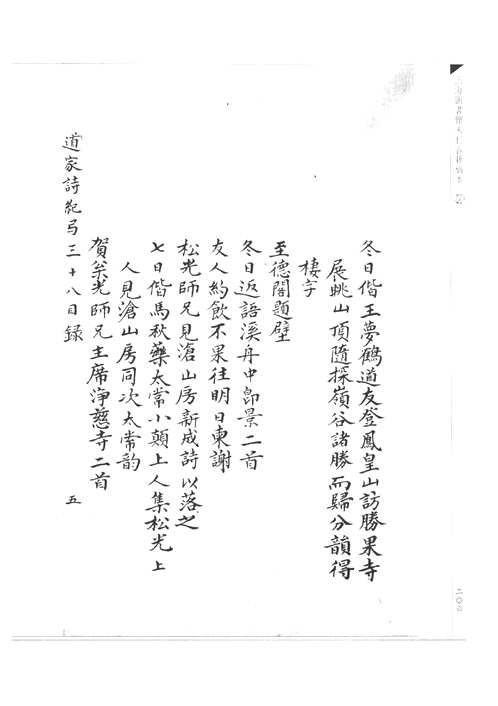 冬日偕王夢鶴道友登鳳皇山訪勝果寺
展眺山頂隨探嶺谷諸勝而歸分韻得
棲字
至德閣題壁
冬日返語溪舟中即景二首
友人約飲不果往明日柬謝
松光師兄見滄山房新成詩以落之
七日偕馬秋藥太常小顛上人集松光上
人見滄山房同次太常韵
賀粂光師兄主席淨慈寺二首
道家詩紀弓三十八目録
五